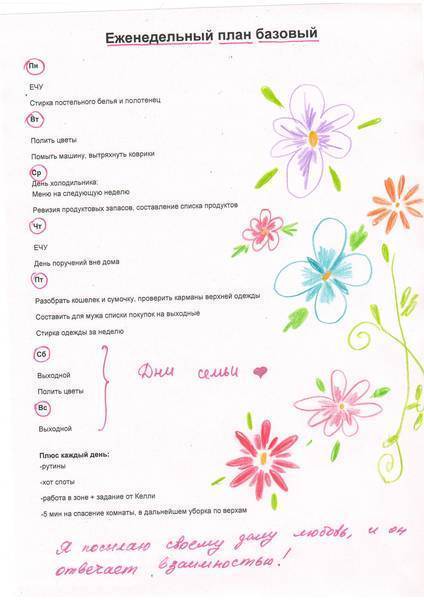 Еженедельный план базовый
Пн
ЕЧУ
Стирка постельного белья и полотенец
Вт
Полить цветы
Помыть машину, вытряхнуть коврики
Ср
День холодильника;
Меню на следующую неделю
Ревизия продуктовых запасов, составление списка продуктов
Чт
ЕЧУ
День поручений вне дома
Пт
Разобрать кошелек и сумочку, проверить карманы верхней одежды
Составить для мужа списки покупок на выходные
Стирка одежды за неделю
Сб
Выходной
Дни семьи
Полить цветы
Вс
Выходной
Плюс каждый день:
-рутины
-хот споты
-работа в зоне + задание от Келли
-5 мин на спасение комнаты, в дальнейшем уборка по верхам
Я посылаю своему дому любовь, и он
отвечает взаимностью!